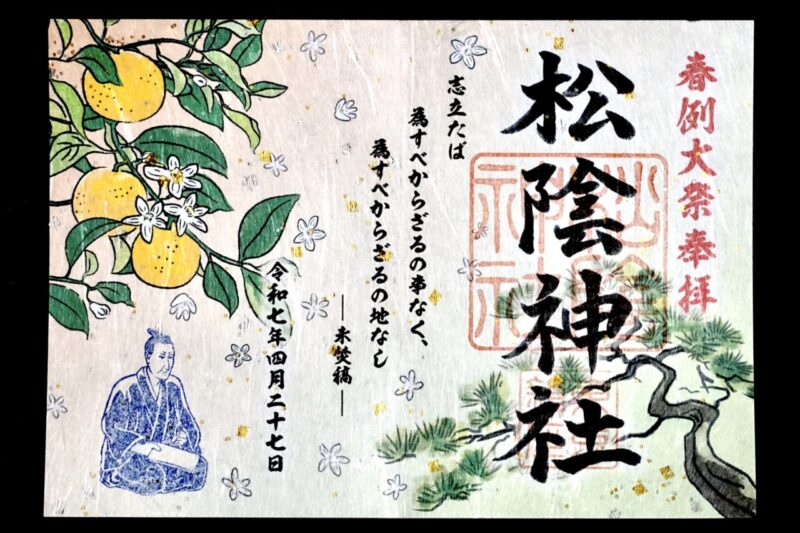 春例大祭奉拝
松陰神社
志立たば
為すべからざるの事なく、
為すべからざるの地なし
―未焚稿―
令和七年四月二十七日